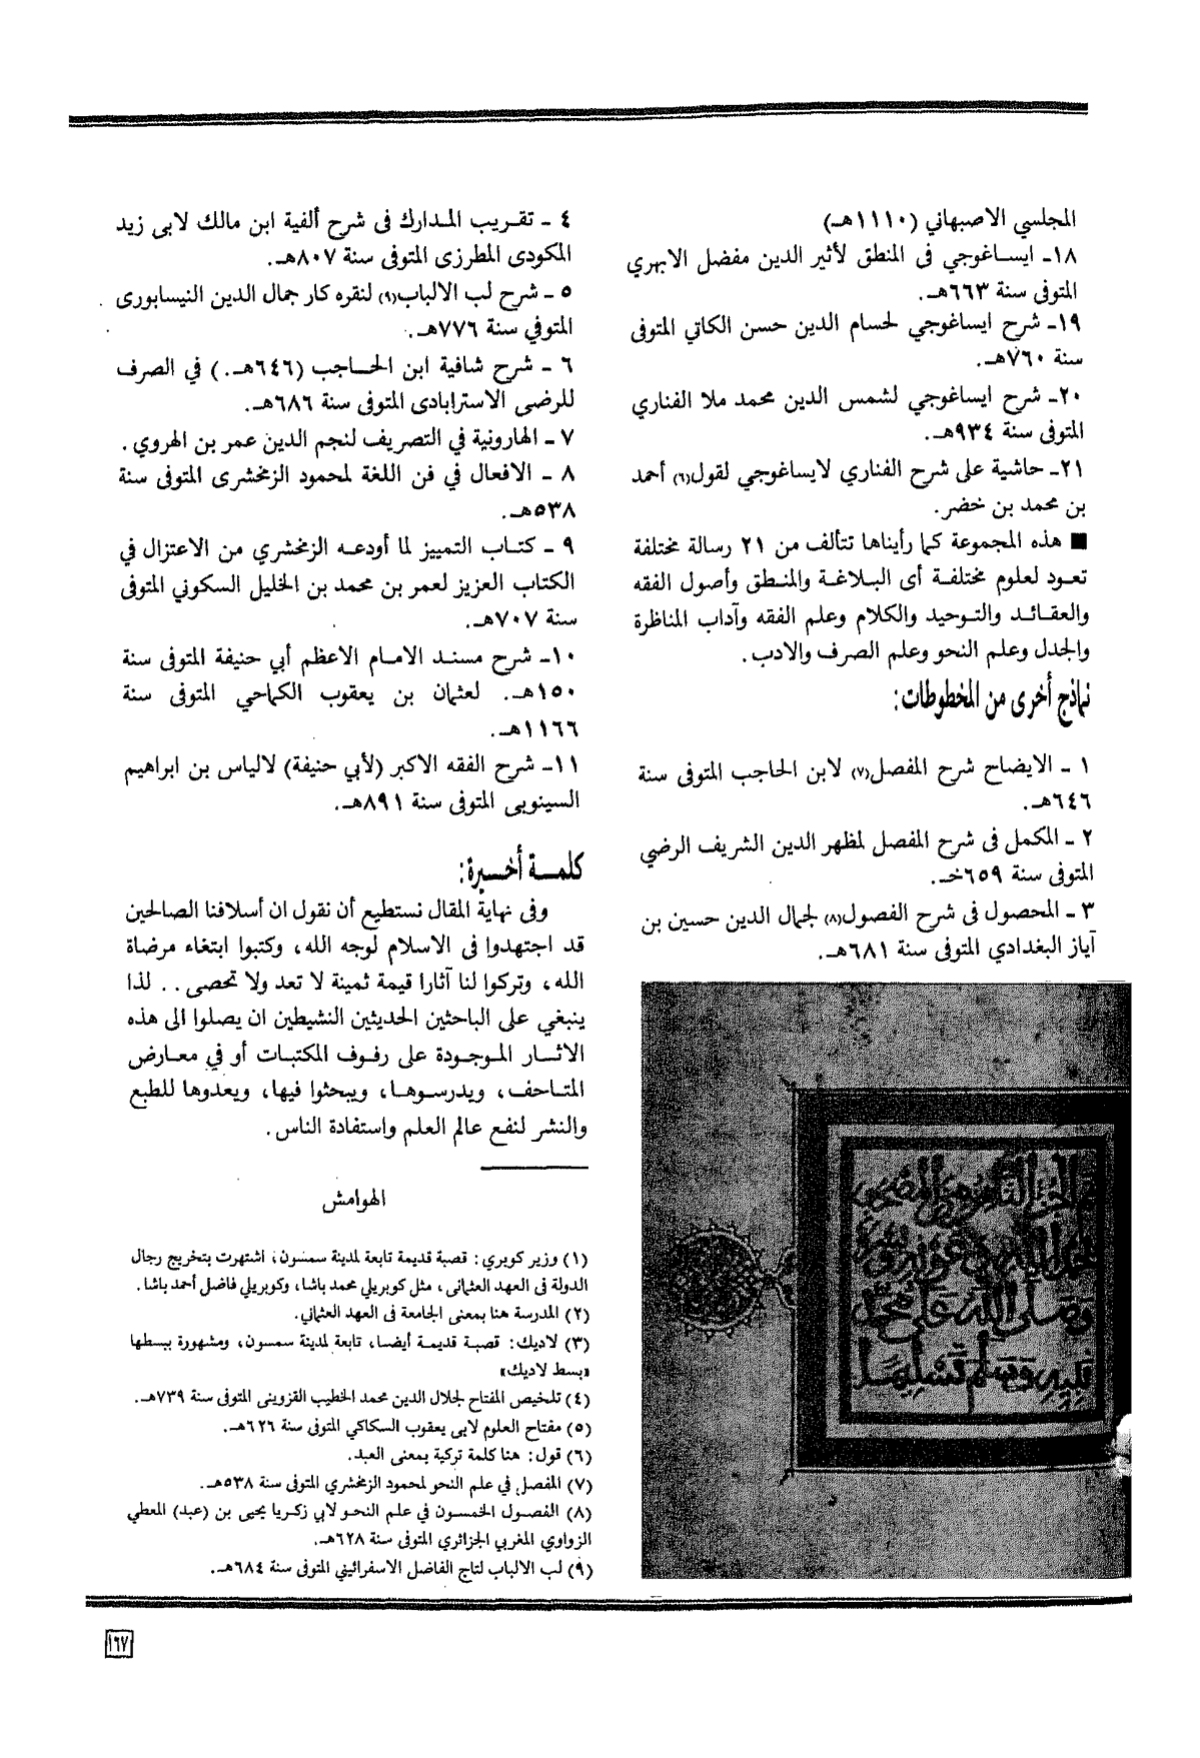 المجلسي الاصبهاني (١١١٠هـ)
١٨ـ ايساغوجي فى المنطق لأثير الدين مفضل الابهري
المتوفى سنة ٦٦٣هـ.
١٩ـ شرح ايساغوجي لحسام الدين حسن الكاتي المتوفى
سنة ٧٦٠هـ.
٢٠ـ شرح ايساغوجي لشمس الدين محمد ملا الفناري
المتوفى سنة ٩٣٤هـ.
٢١ـ حاشية على شرح الفناري لايساغوجي لقول(٦) أحمد
بن محمد بن خضر.
■ هذه المجموعة كما رأيناها تتألف من ٢١ رسالة مختلفة
تعود لعلوم مختلفة أى البلاغة والمنطق وأصول الفقه
والعقائد والتوحيد والكلام وعلم الفقه وآداب المناظرة
والجدل وعلم النحو وعلم الصرف والادب.
نماذج أخرى من المخطوطات:
١ ـ الايضاح شرح المفصل(٧) لابن الحاجب المتوفى سنة
٦٤٦هـ.
٢ ـ المكمل فى شرح المفصل لمظهر الدين الشريف الرضي
المتوفى سنة ٦٥٩خـ.
٣ ـ المحصول فى شرح الفصول(٨) لجمال الدين حسين بن
آياز البغدادي المتوفى سنة ٦٨١هـ.
وصلى الله على محمد
٤ ـ تقريب المدارك فى شرح ألفية ابن مالك لابى زيد
المكودى المطرزى المتوفى سنة ٨٠٧هـ.
٥ ـ شرح لب الالباب(٩) لنقره كار جمال الدين النيسابورى
المتوفي سنة ٧٧٦هـ.
٦ ـ شرح شافية ابن الحاجب (٦٤٦هـ.) في الصرف
للرضى الاسترابادى المتوفى سنة ٦٨٦هـ.
٧ ـ الهارونية في التصريف لنجم الدين عمر بن الهروي.
٨ ـ الافعال في فن اللغة لمحمود الزمخشرى المتوفى سنة
٥٣٨هـ.
٩ ـ كتاب التمييز لما أودعه الزمخشري من الاعتزال في
الكتاب العزيز لعمر بن محمد بن الخليل السكوني المتوفى
سنة ٧٠٧هـ.
١٠ـ شرح مسند الامام الاعظم أبي حنيفة المتوفى سنة
١٥٠هـ. لعثمان بن يعقوب الكماحي المتوفى سنة
١١٦٦هـ.
١١ـ شرح الفقه الاكبر (لأبي حنيفة) لالياس بن ابراهيم
السينوبى المتوفى سنة ٨٩١هـ.
كلمة أخيرة:
وفى نهاية المقال نستطيع أن نقول ان أسلافنا الصالحين
قد اجتهدوا فى الاسلام لوجه الله، وكتبوا ابتغاء مرضاة
الله، وتركوا لنا آثارا قيمة ثمينة لا تعد ولا تحصى.. لذا
ينبغي على الباحثين الحديثين النشيطين ان يصلوا الى هذه
الاثار الموجودة على رفوف المكتبات أو في معارض
المتاحف، ويدرسوها، ويبحثوا فيها، ويعدوها للطبع
والنشر لنفع عالم العلم واستفادة الناس.
الهوامش
(١) وزير كوبري: قصبة قديمة تابعة لمدينة سمسون، اشتهرت بتخريج رجال
الدولة فى العهد العثمانى، مثل كوبريلي محمد باشا، وكوبريلى فاضل أحمد باشا.
(٢) المدرسة هنا بمعنى الجامعة فى العهد العثماني.
(٣) لاديك: قصبة قديمة أيضا، تابعة لمدينة سمسون، ومشهورة ببسطها
«بسط لاديك»
(٤) تلخيص المفتاح لجلال الدين محمد الخطيب القزوينى المتوفى سنة ٧٣٩هـ.
(٥) مفتاح العلوم لابى يعقوب السكاكي المتوفى سنة ٦٢٦هـ.
(٦) قول: هنا كلمة تركية بمعنى العبد.
(٧) المفصل في علم النحو لمحمود الزمخشري المتوفى سنة ٥٣٨هـ.
(٨) الفصول الخمسون في علم النحو لابي زكريا يحيى بن (عبد) المعطي
الزواوي المغربي الجزائري المتوفى سنة ٦٢٨هـ.
(٩) لب الالباب لتاج الفاضل الاسفرائيني المتوفى سنة ٦٨٤هـ.
١٦٧